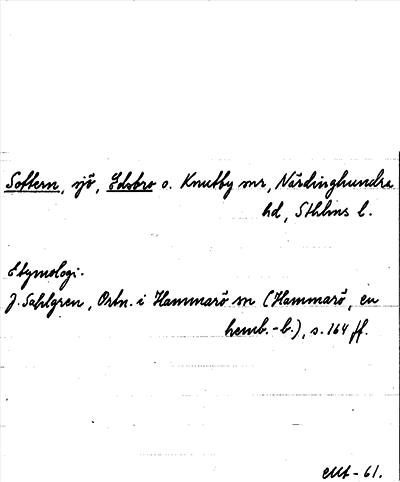 Sottern, sjö, Edsbro o. Knutby snr, Närdinghundra
hd, Sthlms l.
Etymologi.
J. Sahlgren, Ortn. i Hammarö sn (Hammarö, en
hemb.-b.), s. 164 ff.
-61.